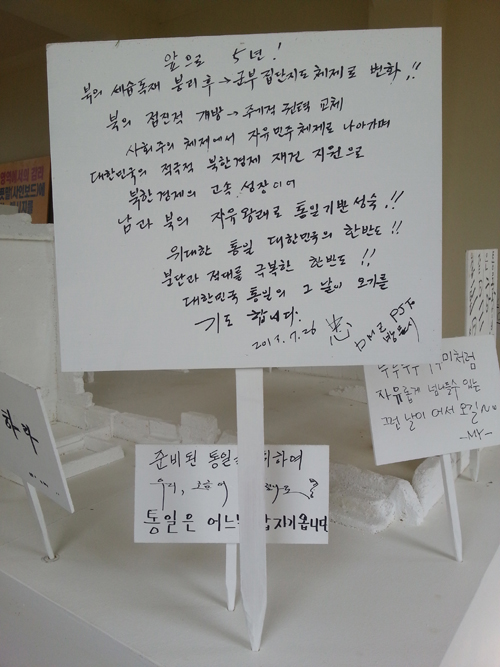 앞으로 5년!
북의 세습독재 붕괴 후 → 군부 집단지도 체제로 변화!!
북의 점진적 개방 → 주기적 권력 교체
사회주의 체제에서 자유민주체제로 나아가며
대한민국의 적극적 북한경제 재건 지원으로
북한경제의 고속 성장이어
남과 북의 자유왕래로 통일기반성숙!!
위대한 통일 대한민국의 한반도!!
분단과 적대를 극복한 한반도!!
대한민국 통일의 그 날이 오기를
기도 합니다.
7.26 忠
DMZ
처럼
자유롭게 넘나들수 있는
그런 날이 어서 오길
-MY-
하부
준비된 통일
통일은 어느 옵니다